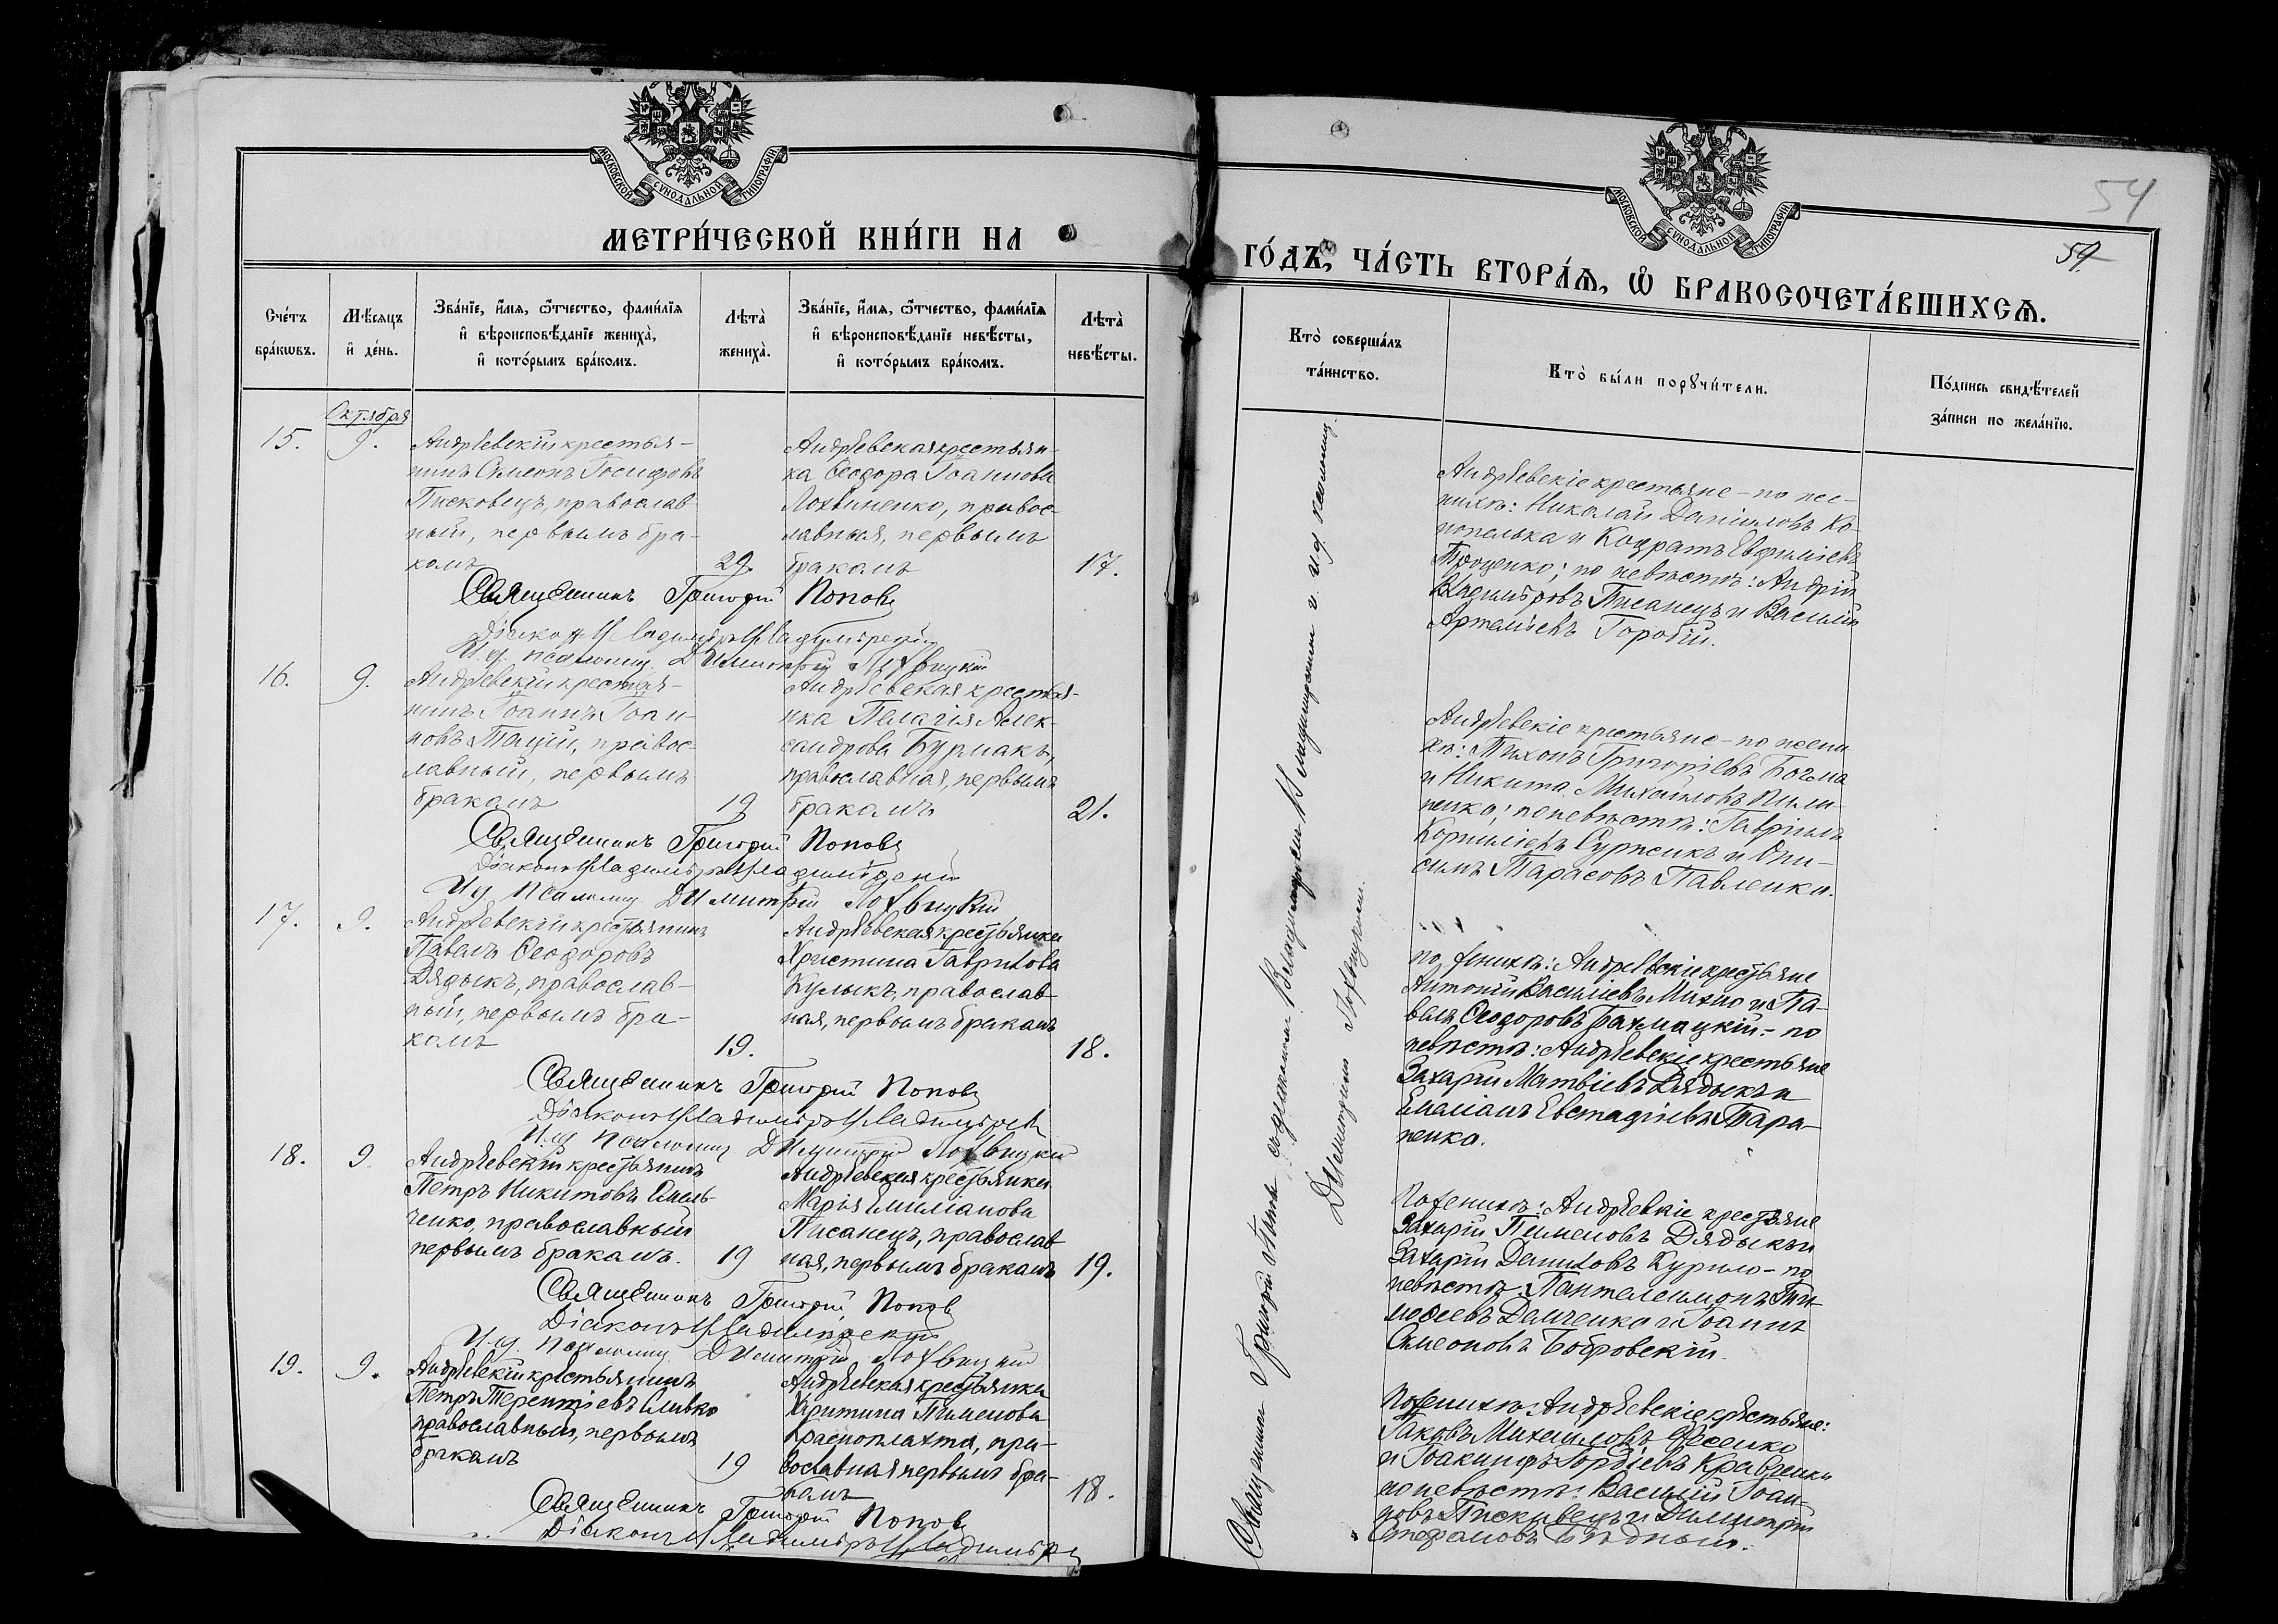 МОСКОВСКОЙ СѴНОДАЛЬНОЙ ТИПОГРАФІИ.
МЕТРИ́ЧЕСКОЙ КНИ́ГИ НА
Сче́тъ бра́кѡвъ.
Мѣ́сяцъ и҆ де́нь.
Зва́нїе, и҆́мѧ, ѻ҆́тчество, фами́лїѧ и҆ вѣроисповѣ́данїе жениха̀, и҆ кото́рымъ бра́комъ.
Лѣта̀ жениха̀.
Зва́нїе, и҆́мѧ, ѻ҆́тчество, фами́лїѧ и҆ вѣроисповѣ́данїе невѣ́сты, и҆ кото́рымъ бра́комъ.
Лѣта̀ невѣ́сты.
Октября
15.
9.
Андрѣевскій крестья-
нинъ Симеонъ Іосифовъ
Писковецъ, православ-
ный, первымъ бра-
комъ
29.
Андрѣевская крестьян-
ка Ѳеодора Іоаннова
Лохвиненко, правос-
лавная, первымъ
бракомъ
17.
Священникъ Григорій Поповъ
Діаконъ Владиміръ Владимірскій
И. д. псаломщ. Димитрій Лохвицкій
16.
9.
Андрѣевскій крестья-
нинъ Іоаннъ Іоан-
новъ Тацій, правос-
лавный, первымъ
бракомъ
19
Андрѣевская крестья-
нка Пелагія Алек-
сандрова Бурмакъ,
православная, первымъ
бракомъ
21.
Священникъ Григорій Поповъ
Діаконъ Владиміръ Владимірскій
И. д. псаломщ. Димитрій Лохвицкій
17.
9.
Андрѣевскій крестьянинъ
Павелъ Ѳеодоровъ
Дядыкъ, православ-
ный, первымъ бра-
комъ
19.
Андрѣевская крестьянка
Христина Гаврилова
Кулыкъ, православ-
ная, первымъ бракомъ
18.
Священникъ Григорій Поповъ
Діаконъ Владиміръ Владимірскій
И. д. псаломщ. Димитрій Лохвицкій
18.
9.
Андрѣевскій крестьянинъ
Петръ Никитовъ Омель-
ченко, православный
первымъ бракомъ.
19
Андрѣевская крестьянка
Марія Емиліанова
Писанецъ, православ
ная, первымъ бракомъ
19.
Священникъ Григорій Поповъ
Діаконъ Владимірскій
И. д. псаломщ. Димитрій Лохвицкій
19.
9.
Андрѣевскій крестьянинъ
Петръ Терентіевъ Сливко
православный, первымъ
бракомъ
19
Андрѣевская крестьянка
Христина Пименова
Краснопляхта, пра-
вославная первымъ бра-
комъ
18.
Священникъ Григорій Поповъ
Діаконъ Владиміръ Владимірск
54
59
МОСКОВСКОЙ СѴНОДАЛЬНОЙ ТИПОГРАФІИ.
ГО́ДЪ, ЧА́СТЬ ВТОРА́Ѧ, Ѡ҆ БРАКОСОЧЕТА́ВШИХСѦ.
Кто̀ соверша́лъ та́инство.
Кто̀ бы́ли порꙋчи́тели.
По́дпись свидѣ́телей за́писи по жела́нїю.
Священникъ Григорій Поповъ съ діакономъ Владиміромъ Владимірскимъ и и. д. псаломщ.
Димитріемъ Лохвицкимъ.
Андрѣевскіе крестьяне - по же-
нихѣ: Николай Даніиловъ Ко-
нопелька и Кодратъ Евфиміевъ
Троценко; по невѣстѣ: Андрій
Владиміровъ Писанецъ и Василій
Артеміевъ Горобій.
Андрѣевскіе крестьяне - по жени
хѣ: Тихонъ Григоріевъ Бочма
и Никита Михаиловъ Пили-
пенко; по невѣстѣ: Гавріилъ
Корниліевъ Суржикъ и Они-
симъ Тарасовъ Павленко.
по женихѣ: Андрѣевскіе крестьяне
Антоній Василіевъ Михно и Па-
велъ Ѳеодоровъ Бахмацкій - по
невѣстѣ: Андрѣевскіе крестьяне
Захарій Матвіевъ Дядыкъ и
Емиліанъ Евстафіевъ Тара-
ненко.
По женихѣ: Андрѣевскіе крестьяне
Захарій Пименовъ Дядыкъ и
Захарій Даниловъ Курило - по
невѣстѣ: Пантелеимонъ Ти-
моѳеевъ Демченко и Іоаннъ
Симеоновъ Бобровскій.
По женихѣ: Андрѣевскіе крестьяне:
Іаковъ Михаиловъ Ѳесенко
и Іоакимъ Гордіевъ Кравченко
по невѣстѣ: Василій Іоан-
новъ Писковецъ и Димитрій
Стефановъ Бѣдный.